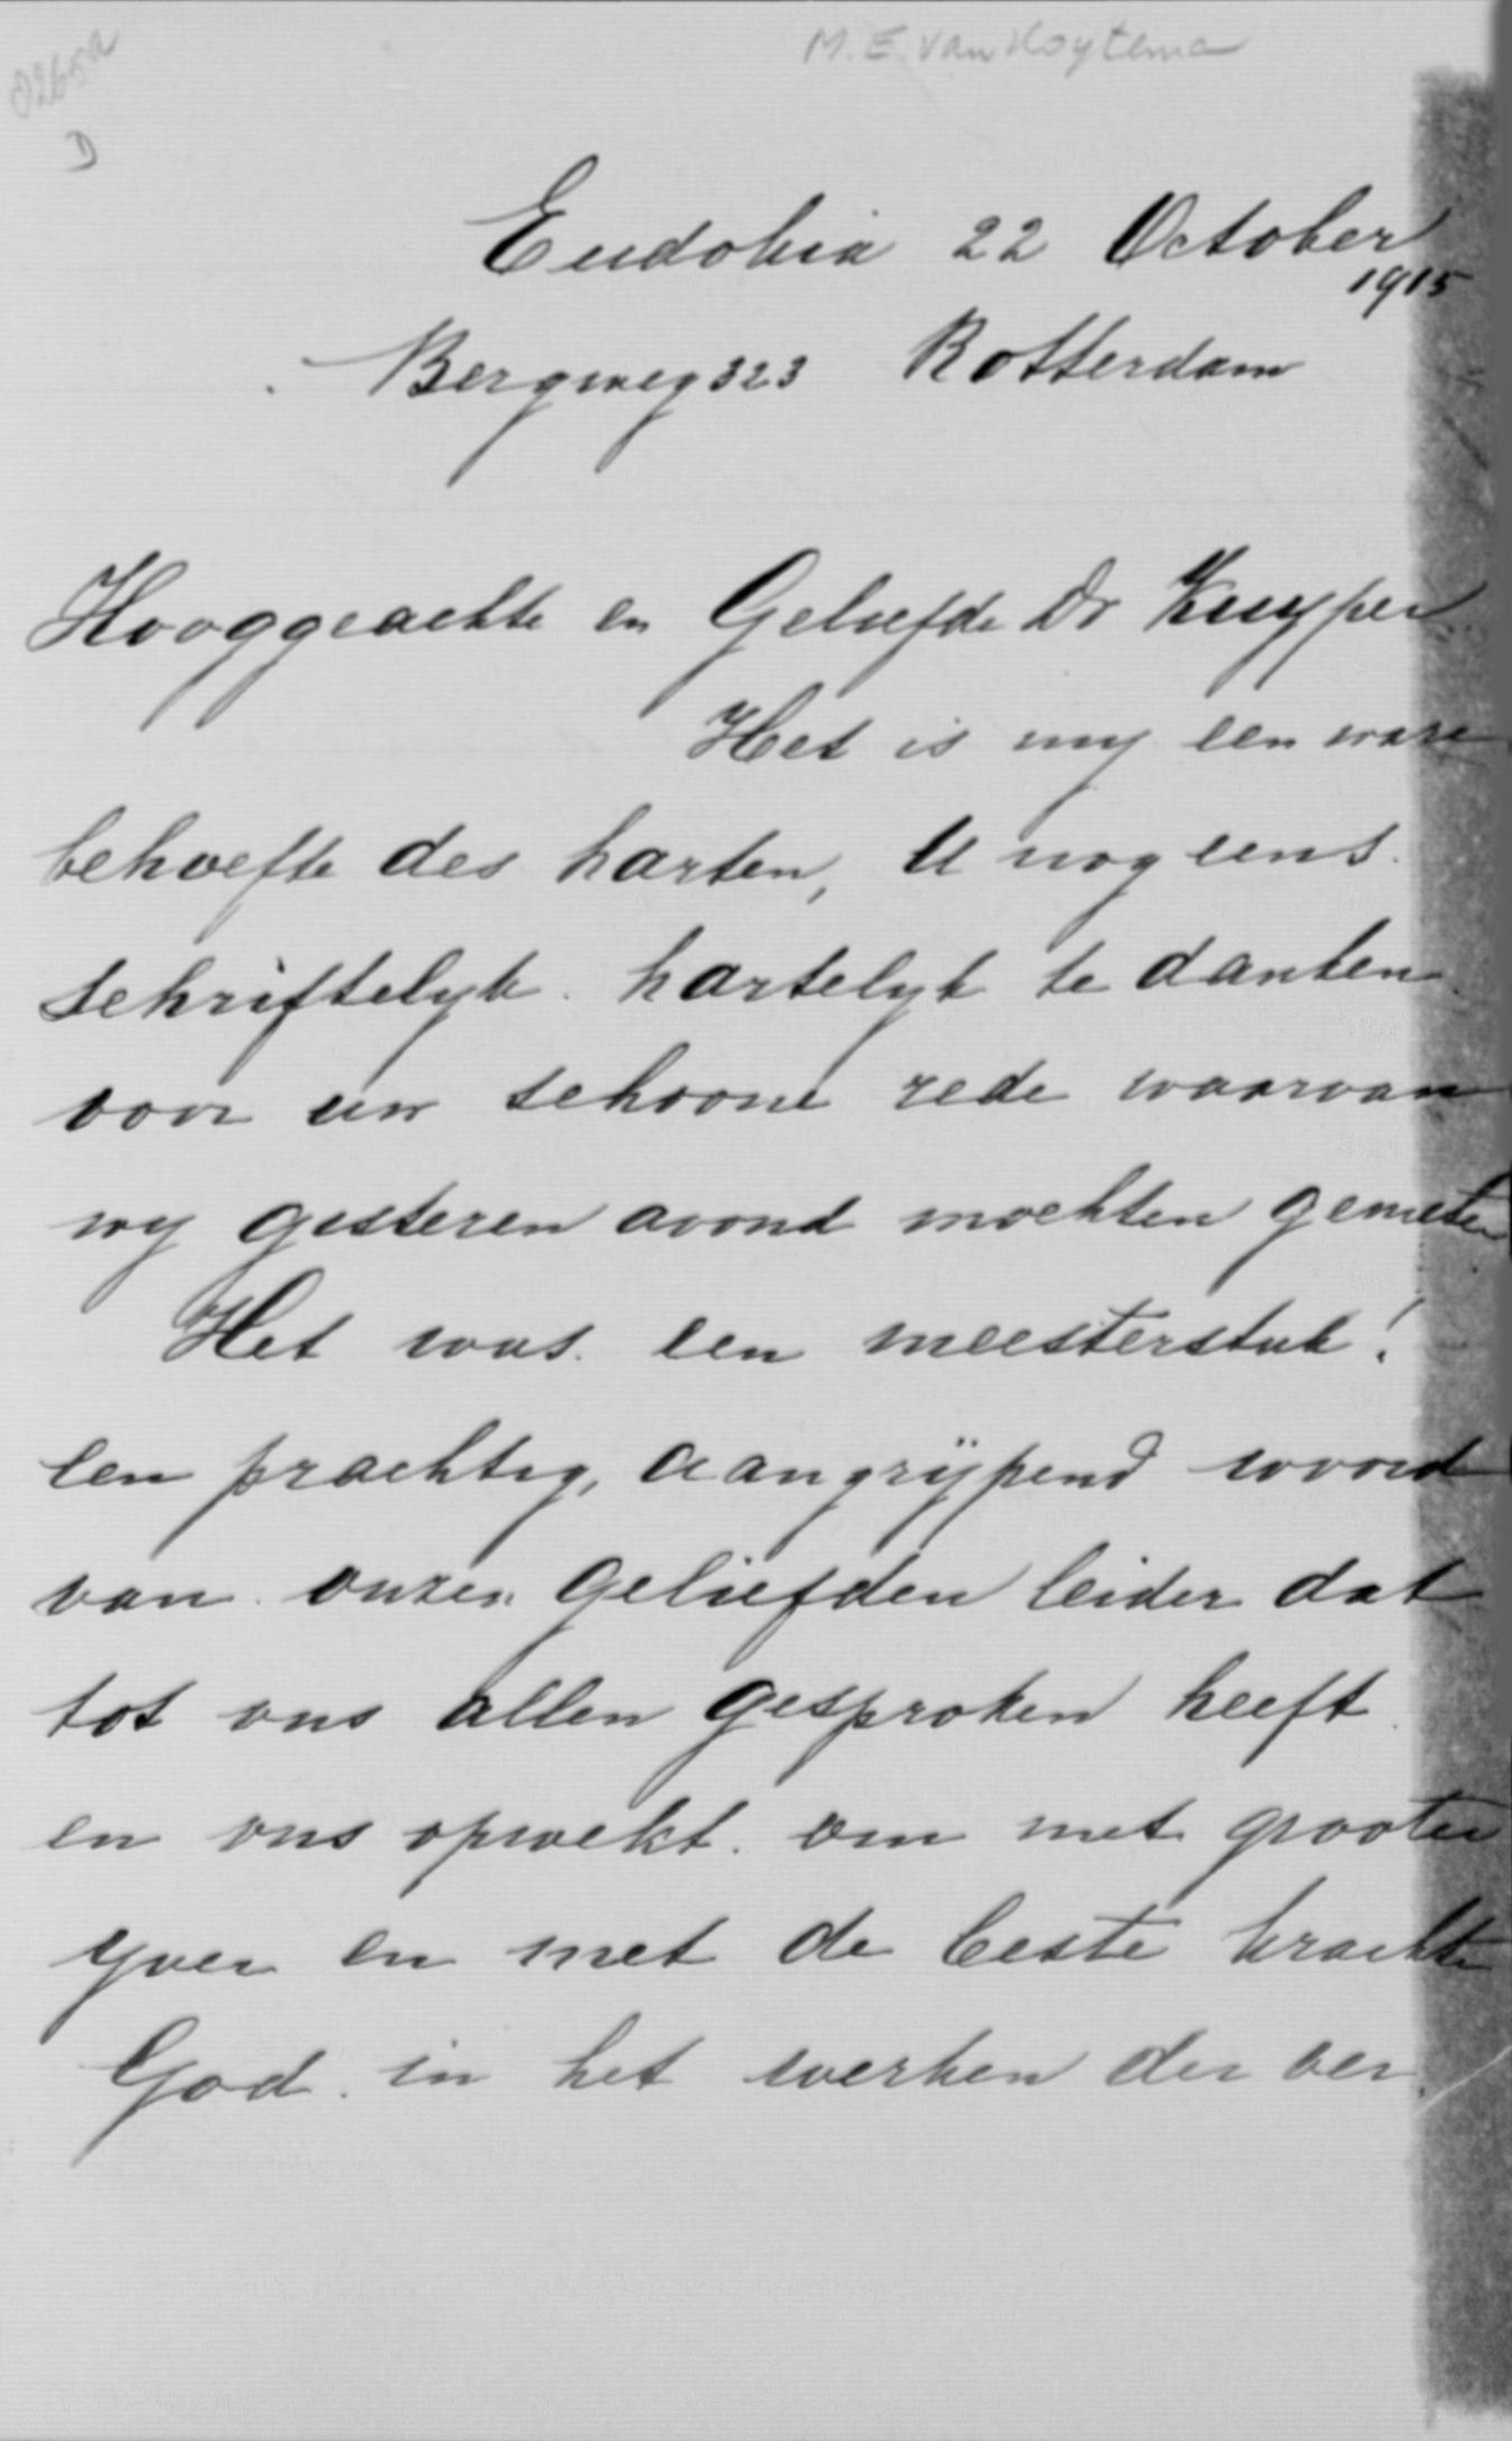 M. E. van Hoytema
0265a
D
Eudokia 22 October
1915
Bergweg 323 Rotterdam
Hooggeachte en Geliefde Dr Kuyper
Het is my een ware
behoefte des harten, U nog eens
schriftelyk hartelyk te danken
voor uw schoone rede waarvan
wy gisteren avond mochten genieten
Het was een meesterstuk!
een prachtig, aangrÿpend woord
van onzen geliefden leider dat
tot ons allen gesproken heeft
en ons opwekt om met grooter
yver en met de beste krachten
God in het werken der ver